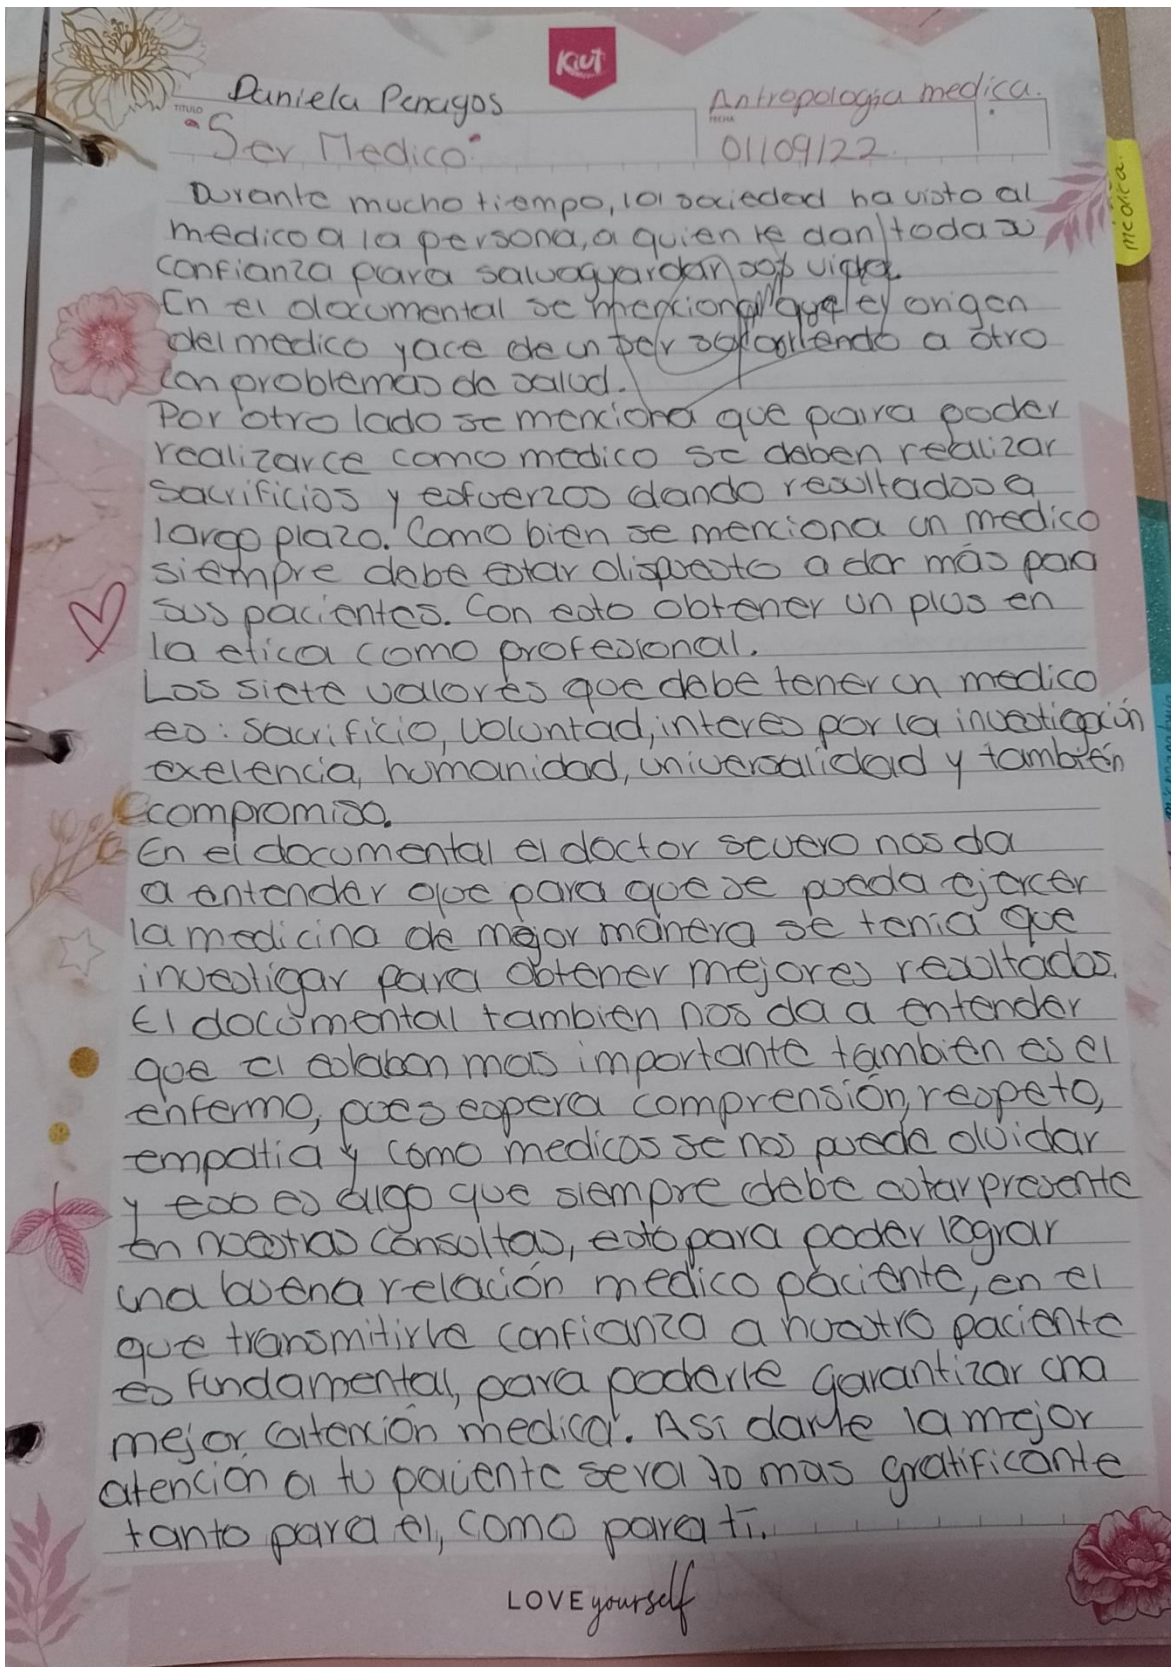 Kiut
Daniela Penagos
Antropologia medica.
TITULO
"Ser Medico"
FECHA
01/09/22
Durante mucho tiempo, la sociedad ha visto al
medico a la persona, a quien le dan toda su
confianza para salvaguardar sus vida.
En el documental se menciona que el origen
del medico yace de un ser socorriendo a otro
con problemas de salud.
Por otro lado se menciona que para poder
realizarce como medico se deben realizar
sacrificios y esfuerzos dando resultados a
largo plazo. Como bien se menciona un medico
siempre debe estar dispuesto a dar más para
sus pacientes. Con esto obtener un plus en
la etica como profesional.
Los siete valores que debe tener un medico
es: sacrificio, voluntad, interes por la investigación
exelencia, humanidad, universalidad y también
compromiso.
En el documental el doctor severo nos da
a entender que para que se pueda ejercer
la medicina de mejor manera se tenia que
investigar para obtener mejores resultados.
El documental tambien nos da a entender
que el eslabon mas importante también es el
enfermo, pues espera comprensión, respeto,
empatia y como medicos se nos puede olvidar
y eso es algo que siempre debe estar presente
en nuestras consultas, esto para poder lograr
una buena relación medico paciente, en el
que transmitirle confianza a nuestro paciente
es fundamental, para poderle garantizar una
mejor atención medica. Asi darle la mejor
atención a tu paciente sera lo mas gratificante
tanto para el, como para ti.
LOVE yourself
medica.